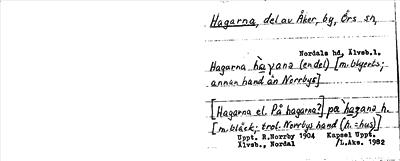 Hagarna, del av Åker, by, Örs sn,
Nordals hd, Älvsb.l.
Hagarna hagana (en del) [m. blyerts;
annan hand än Norrbys]
[Hagarna el. På hagarna?] på hagana h.
[m. bläck; trol. Norrbys hand (h. = hus)]
Uppt. R.Norrby 1904 Kapsel Uppt.
Älvsb., Nordal /L.Aks. 1982